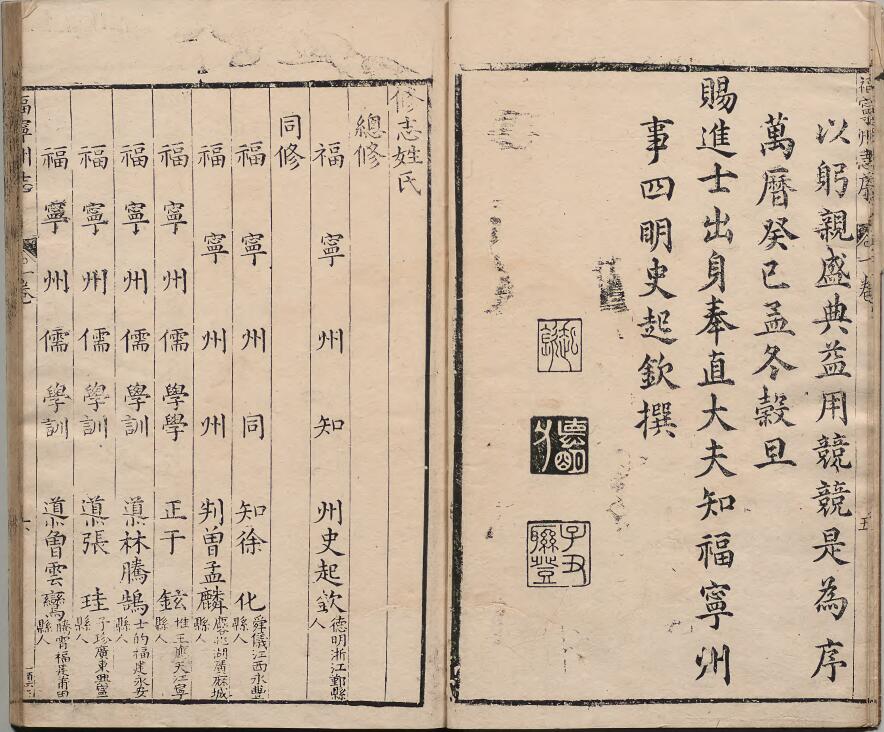 福寧州志序 一卷 五
以躬親盛典益用競競是為序
萬曆癸巳孟冬穀旦
賜進士出身奉直大夫知福寧州
事四明史起欽撰
子丑聯登
修志姓氏
總修
福寧州知州史起欽 德明浙江鄞縣人
同修
福寧州同知徐化 舜儀江西永豐縣人
福寧州州判曾孟麟 湖廣麻城縣人
福寧州儒學學正于鉉 江寧縣人
福寧州儒學訓導林騰鵠 士的福建永安縣人
福寧州儒學訓導張珪 子珍廣東興寧縣人
福寧州儒學訓導魯雲鸞 騰霄福建莆田縣人
福寧州志 一卷 六